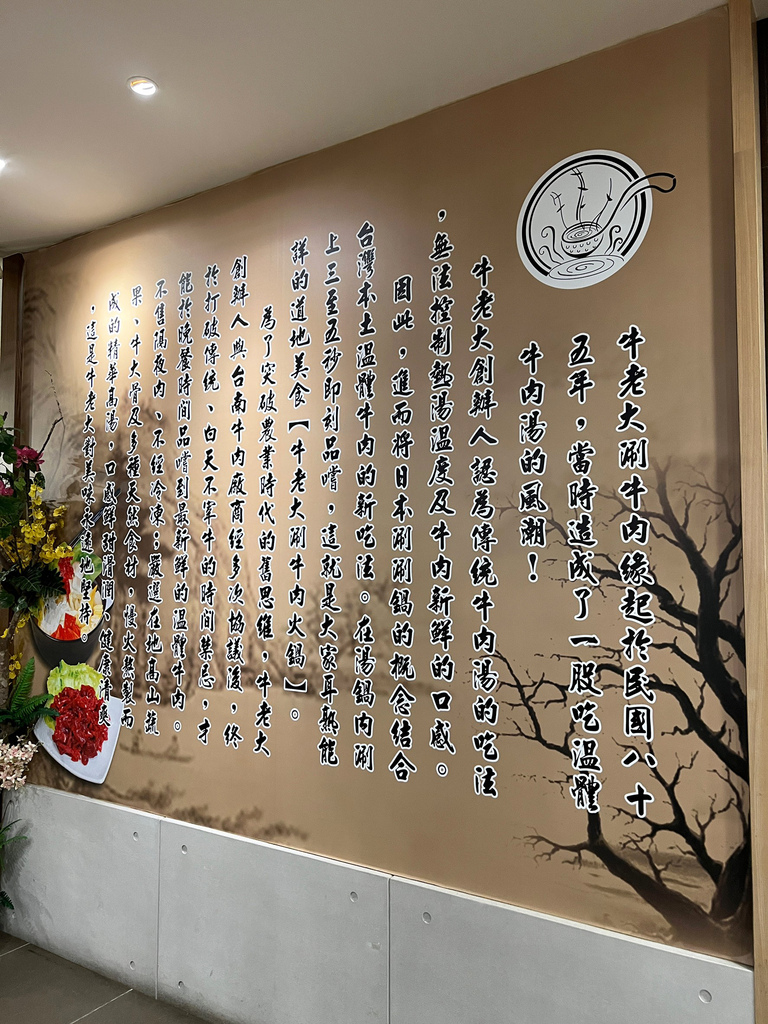 牛老大涮牛肉緣起於民國八十
五年，當時造成了一股吃溫體
牛肉湯的風潮！
牛老大創辦人認為傳統牛肉湯的吃法
，無法控制熱湯溫度及牛肉新鮮的口感。
因此，進而將日本涮涮鍋的概念結合
台灣本土溫體牛肉的新吃法。在湯鍋內涮
上三至五秒即刻品嚐，這就是大家耳熟能
詳的道地美食【牛老大涮牛肉火鍋】。
為了突破農業時代的舊思維，牛老大
創辦人與台南牛肉廠商經多次協議後，終
於打破傳統、白天不宰牛的時間禁忌，才
能於晚餐時間品嚐到最新鮮的溫體牛肉。
不售隔夜肉、不經冷凍；嚴選在地高山蔬
果、牛大骨及多種天然食材，慢火熬製而
成的精華高湯，口感鮮甜滑潤、健康清爽
，這是牛老大對美味永遠地堅持。